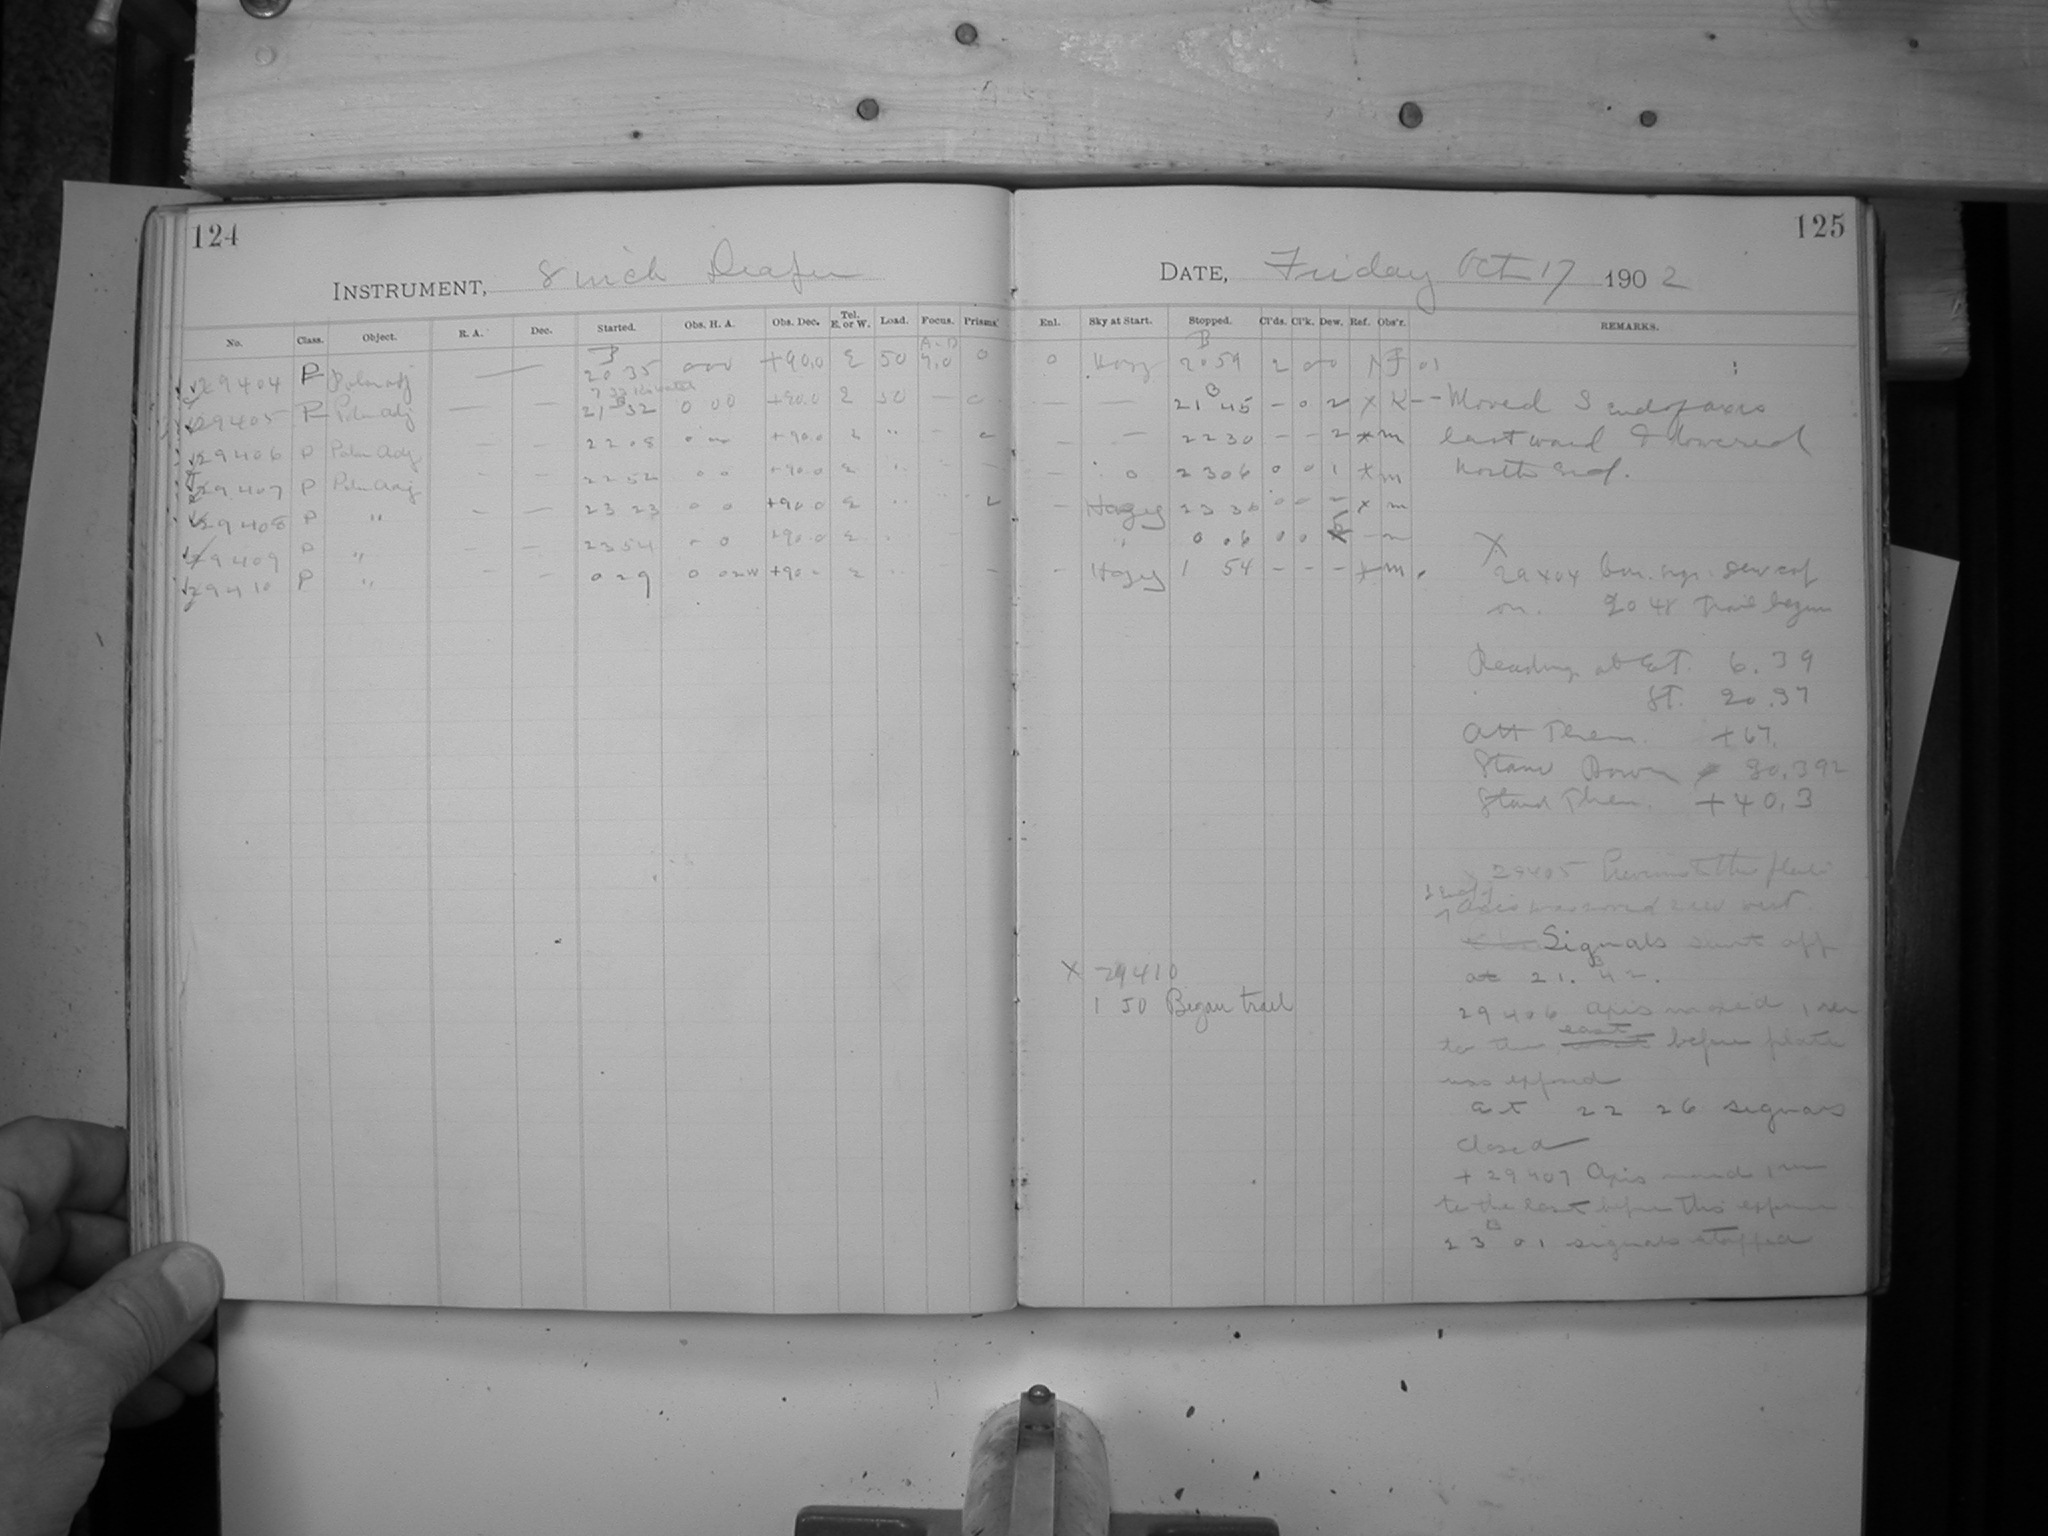 124
125
INSTRUMENT, 8 inch Draper
DATE, Friday Oct 17 1902
No. Class. Object. R. A. Dec. Started. Obs. H. A. Obs. Dec. Tel. E. or W. Load. Focus. Prisms
Enl. Sky at Start. Stopped. Cl'ds. Cl'k. Dew. Ref. Obs'r. REMARKS.
29404 P Polar adj — 20 35 0 00 +90.0 E 50 9.0 0
0 Hazy 20 59 2
29405 P Polar Adj — — 21 32 0 00 +90.0 E 50 —
— — 21 45 — 0 2 x K -- Moved S end of axis
29406 P Polar Adj — — 22 08 +90.0 E " —
— — 22 30 — — 2 x m eastward & lowered
29407 P Polar Adj — — 22 52 0 0 +90.0 E
— 0 23 06 0 0 1 x m North End.
29408 P " — — 23 23 0 0 +90.0 E
— Hazy 23 36 0 0 — x m
29409 P " — — 23 54 0 +90.0 E
" 0 06 0 0
29410 P " — — 0 29 0 02W +90 E
— Hazy 1 54 — — — x m
X
29404 dew cap
on. 20 48 Trail begun
Reading at ET. 6.39
ST. 20.37
Att Therm. +67.
Stand Barom 30.392
Stand Therm. +40.3
29405 Previous to this plate
axis was moved west.
Signals shut off
at 21. 42.
X 29410
1 50 Began trail
29406 Axis moved 1 rev
to the east before plate
was exposed
at 22 26 signals
closed
+ 29407 Axis moved 1 rev
to the east before this exposure
23 01 signals stopped